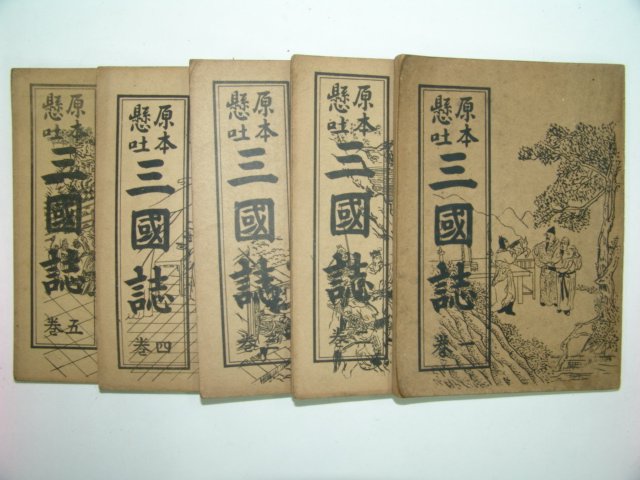 原本
懸吐
三國誌
一卷
原本
懸吐
三國誌
卷
原本
懸吐
三國誌
卷
原本
懸吐
三國誌
四卷
原本
懸吐
三國誌
五卷